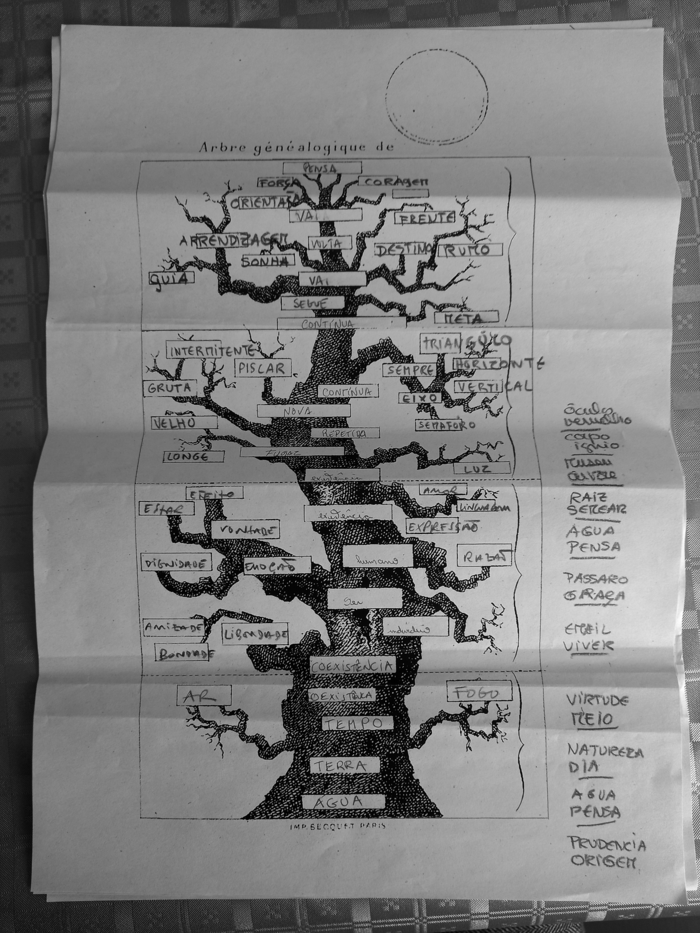 Arbre généalogique de
PENSA
FORÇA
CORAGEM
ORIENTA
VAI
FRENTE
APRENDIZAGEM
VOLTA
DESTINO
RUMO
SONHA
GUIA
VAI
SEGUE
META
CONTÍNUA
TRIANGULO
INTERMITENTE
PISCAR
SEMPRE
HORIZONTE
GRUTA
CONTÍNUA
VERTICAL
EIXO
NOVA
VELHO
SEMAFORO
REPETIDA
LONGE
LUZ
existência
EFEITO
AMOR
ESTAR
LINGUAGEM
existência
VONTADE
EXPRESSÃO
DIGNIDADE
EMOÇÃO
humano
RAZÃO
Ser
AMIZADE
LIBERDADE
indivíduo
BONDADE
COEXISTÊNCIA
AR
COEXISTÊNCIA
FOGO
TEMPO
TERRA
ÁGUA
IMP. BECQUET PARIS
óculo
vermelho
corpo
RAIZ
SEREAR
AGUA
PENSA
PASSARO
GRAÇA
EMAIL
VIVER
VIRTUDE
MEIO
NATUREZA
DIA
AGUA
PENSA
PRUDENCIA
ORIGEM